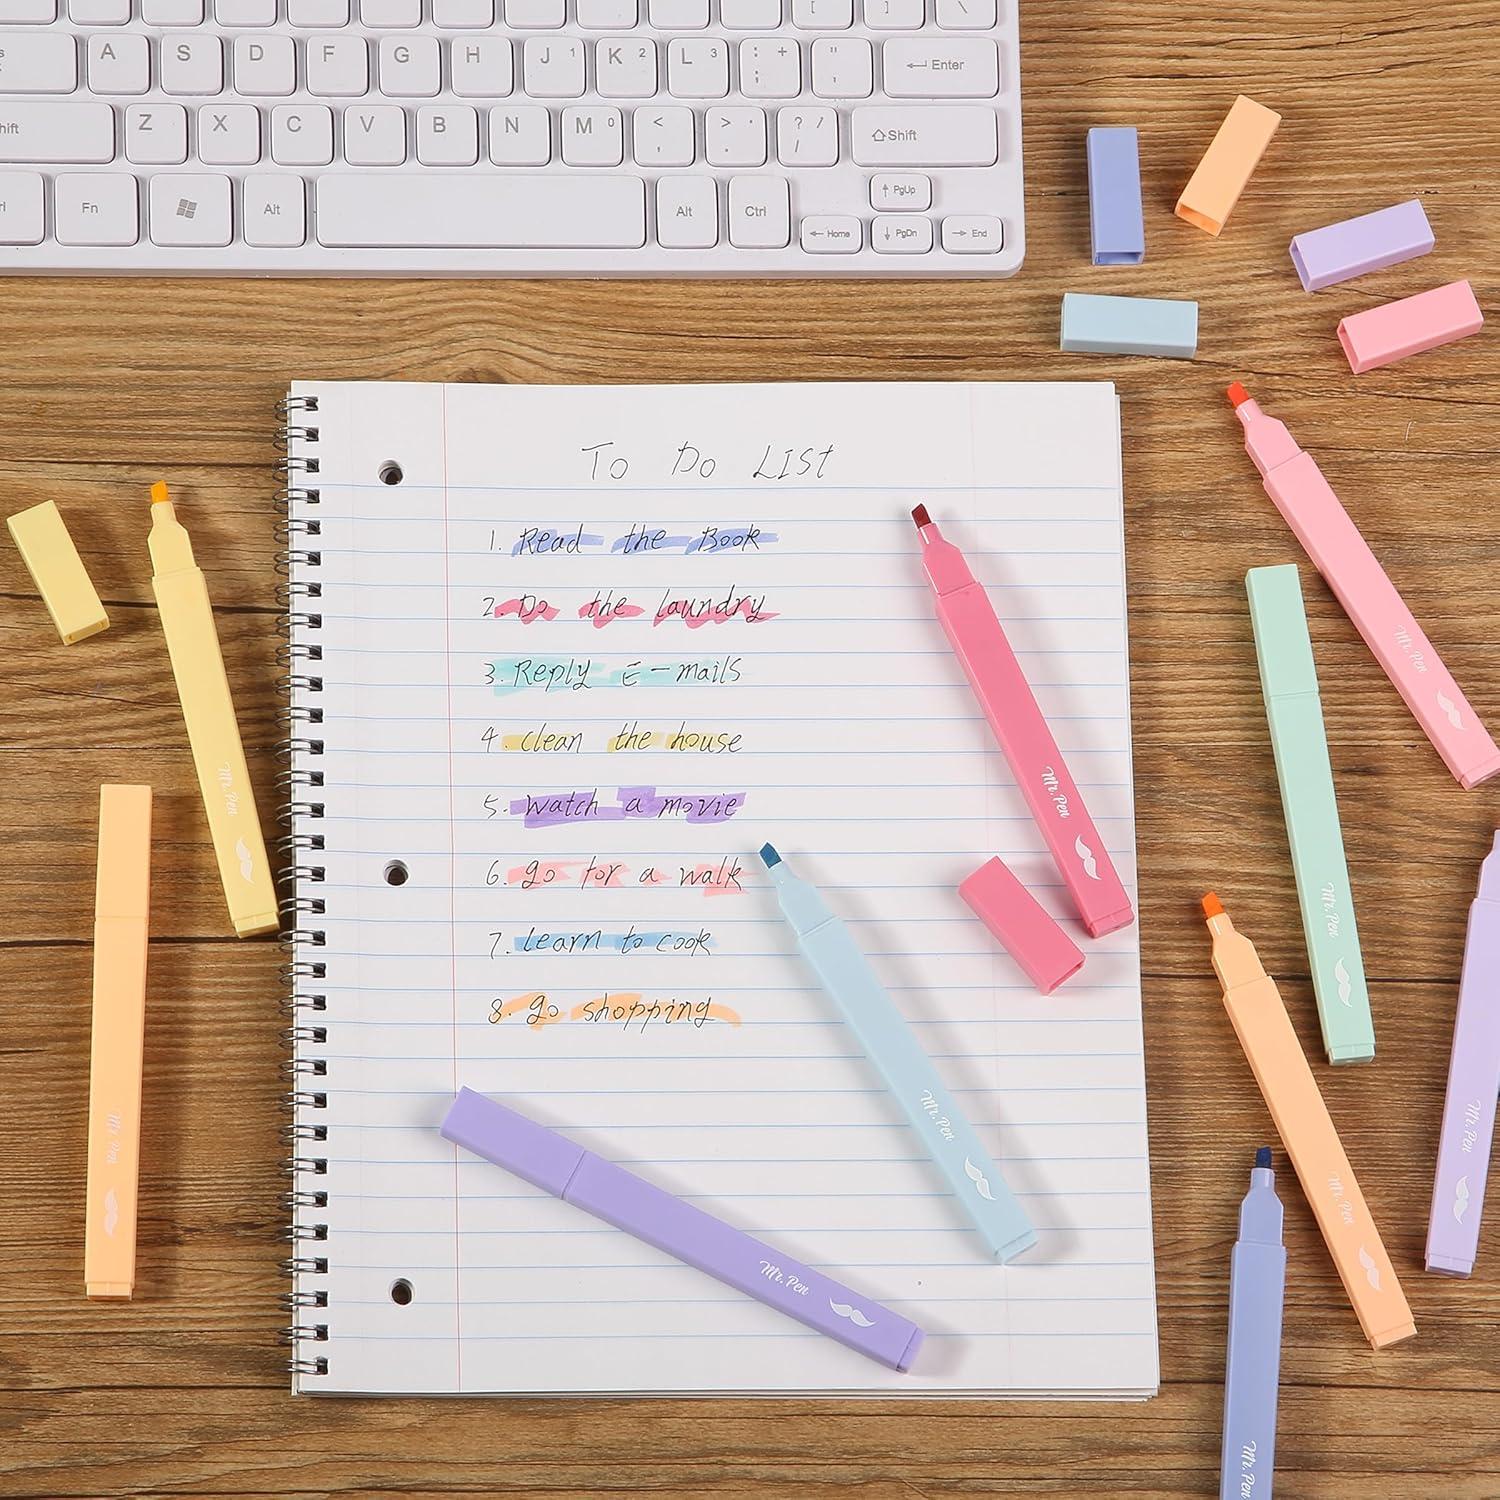 [ ] \
A S D F G H J 1 K 2 L 3 : ; + " ' Enter
hift Z X C V B N M 0 < , > . ? / Shift
rl Fn Alt Alt Ctrl PgUp
Home PgDn End
To Do LIST
1. Read the Book
2. Do the laundry
3. Reply E-mails
4. clean the house
5. Watch a movie
6. go for a walk
7. learn to cook
8. go shopping
Mr. Pen
Mr. Pen
Mr. Pen
Mr. Pen
Mr. Pen
Mr. Pen
Mr. Pen
Mr. Pen
Mr. Pen
Mr. Pen